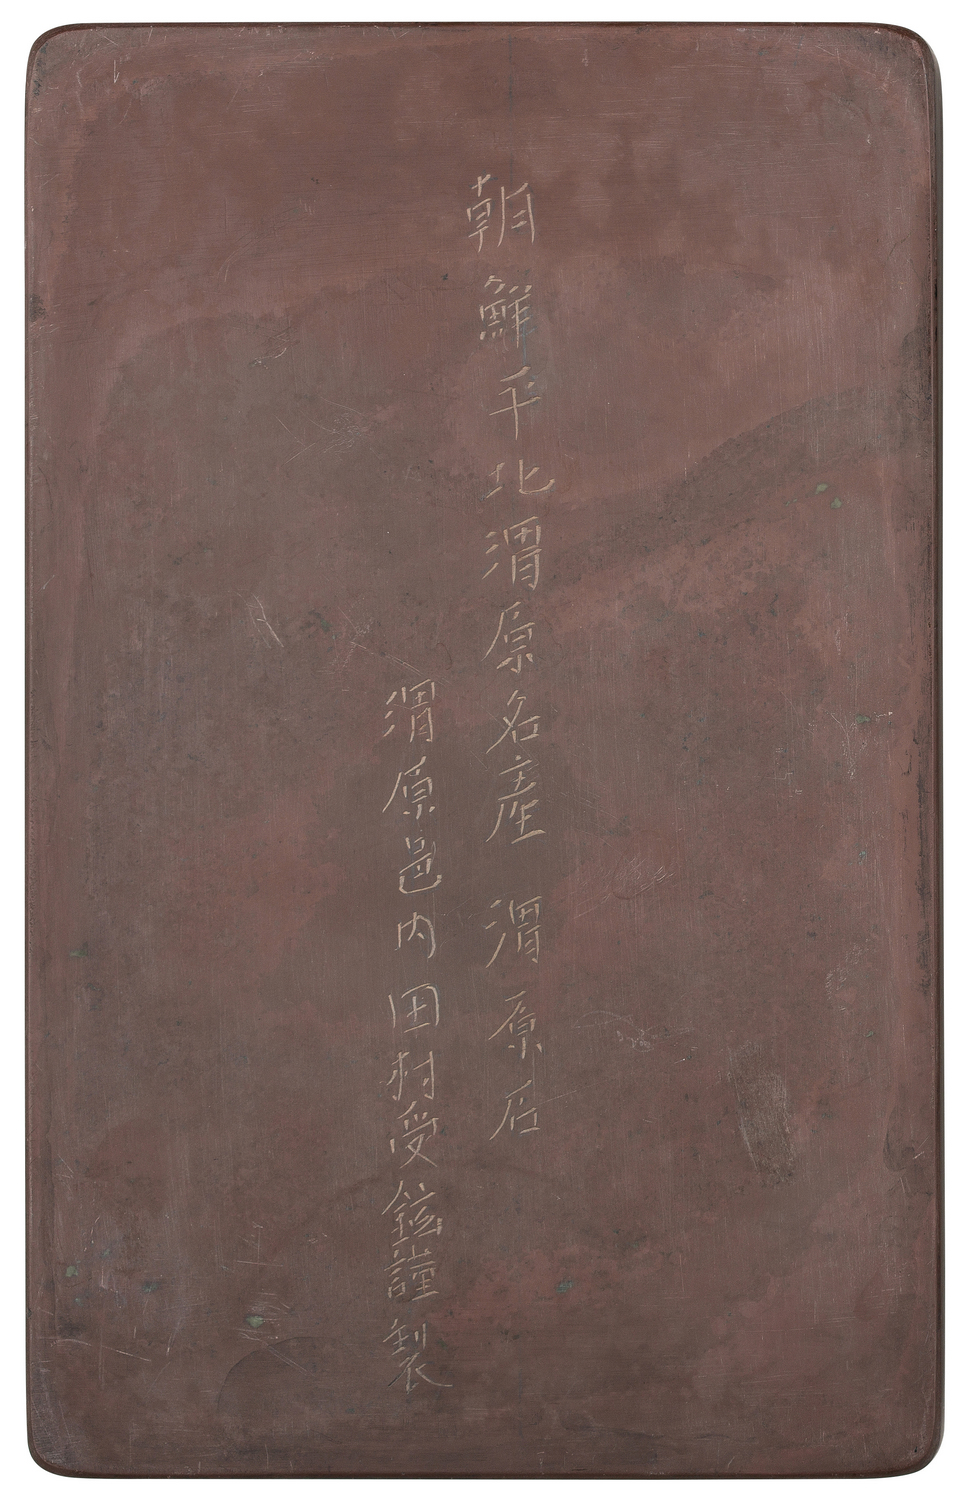 朝鮮平北渭原名産 渭原石
渭原邑内 田村受鉉謹製